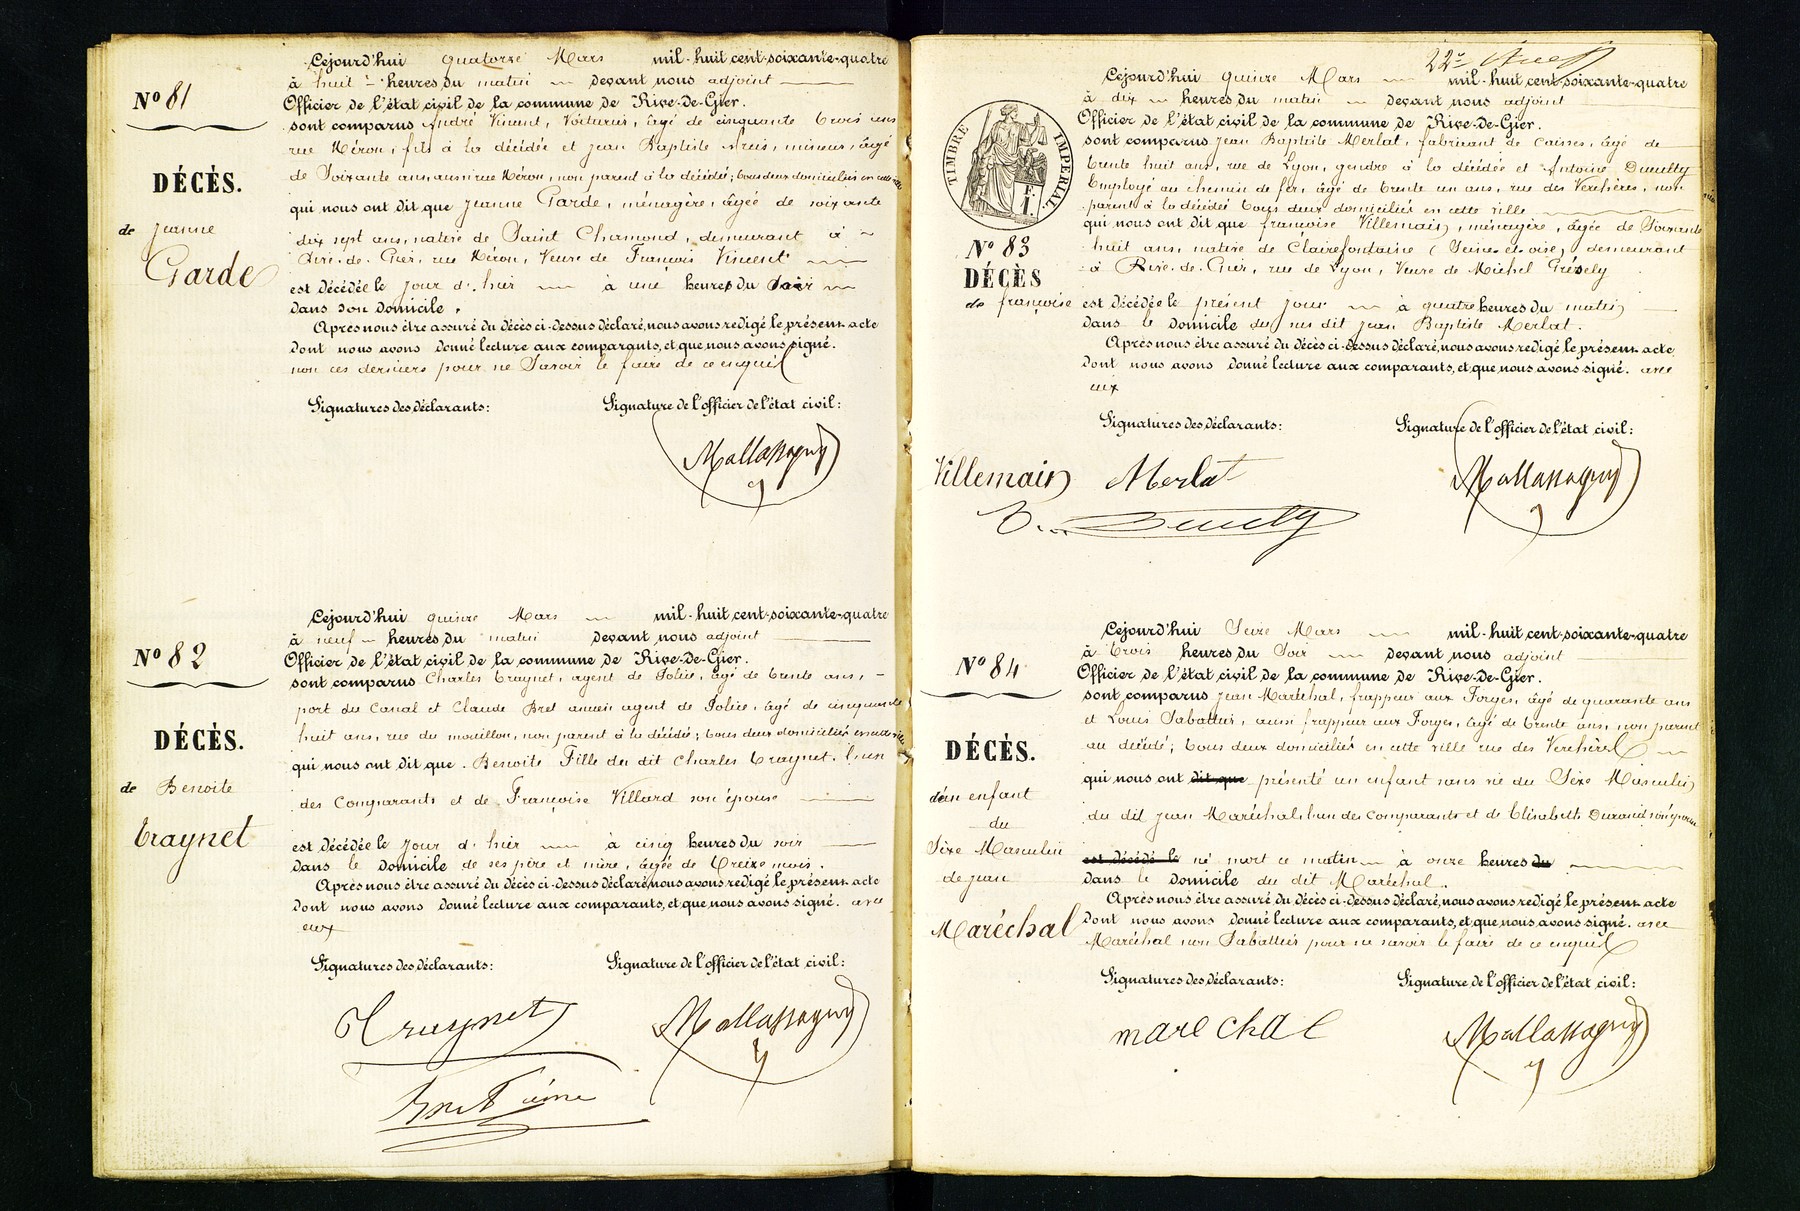 Cejourd'hui quatorze Mars mil-huit cent-soixante-quatre
à huit heures du matin devant nous adjoint
Officier de l'état civil de la commune de Rive-de-Gier.
sont comparus André Vincent, Voiturier, âgé de cinquante trois ans
rue Méron, fils à la décédée et Jean Baptiste mineur, âgé
de Soixante ans, aussi rue Méron, non parent à la décédée; tous deux domiciliés en cette ville
qui nous ont dit que Jeanne Garde, ménagère, âgée de soixante
dix sept ans, native de Saint Chamond, demeurant à
Rive-de-Gier, rue Méron, Veuve de François Vincent
est décédée le jour d'hier à une heures du soir
dans son domicile.
Après nous être assuré du décès ci-dessus déclaré, nous avons rédigé le présent acte
dont nous avons donné lecture aux comparants, et que nous avons signé.
non ces derniers pour ne Savoir le faire de ce enquis
Signatures des déclarants: Signature de l'officier de l'état civil:
Mallassagny
No 81
DÉCÈS.
de Jeanne
Garde
Cejourd'hui quinze Mars mil-huit cent-soixante-quatre
à neuf heures du matin devant nous adjoint
Officier de l'état civil de la commune de Rive-de-Gier.
sont comparus Charles Traynet, agent de Police, âgé de trente ans,
port du Canal et Claude Bret ancien agent de Police, âgé de cinquante
huit ans, rue du mouillon, non parent à la décédé; tous deux domiciliés en cette ville
qui nous ont dit que Benoite Fille du dit Charles Traynet, l'un
des Comparants et de Françoise Villard son épouse
est décédée le jour d'hier à cinq heures du soir
dans le domicile de ses père et mère, âgée de Treize mois.
Après nous être assuré du décès ci-dessus déclaré, nous avons rédigé le présent acte
dont nous avons donné lecture aux comparants, et que nous avons signé. avec
eux
Signatures des déclarants: Signature de l'officier de l'état civil:
Traynet Mallassagny
Bret
No 82
DÉCÈS.
de Benoite
Traynet
22e
Cejourd'hui quinze Mars mil-huit cent-soixante-quatre
à dix heures du matin devant nous adjoint
Officier de l'état civil de la commune de Rive-de-Gier.
sont comparus Jean Baptiste Merlat, fabricant de Caisses, âgé de
trente huit ans, rue de Lyon, gendre à la décédée et Antoine
Employé au chemin de fer, âgé de trente un ans, rue des Verchères, non
parent à la décédée tous deux domiciliés en cette ville
qui nous ont dit que françoise Villemain, ménagère, âgée de Soixante
huit ans, native de Clairefontaine (Seine-et-oise), demeurant
à Rive-de-Gier, rue de Lyon, Veuve de Michel Grésely
est décédée le présent jour à quatre heures du matin
dans le domicile du sus dit Jean Baptiste Merlat.
Après nous être assuré du décès ci-dessus déclaré, nous avons rédigé le présent acte
dont nous avons donné lecture aux comparants, et que nous avons signé. avec
eux
Signatures des déclarants: Signature de l'officier de l'état civil:
Merlat Mallassagny
TIMBRE IMPERIAL
E. F.
No 83
DÉCÈS
de françoise
Villemain
Cejourd'hui Seize Mars mil-huit cent-soixante-quatre
à trois heures du Soir devant nous adjoint
Officier de l'état civil de la commune de Rive-de-Gier.
sont comparus Jean Maréchal, frappeur aux Forges, âgé de quarante ans
et Louis Sabattier, aussi frappeur aux Forges, âgé de trente ans, non parent
au décédé; tous deux domiciliés en cette ville rue des Verchères
qui nous ont dit que présenté un enfant sans vie du Sexe Masculin
du dit Jean Maréchal, l'un des Comparants et de Elisabeth Durand son épouse
est décédé le né mort ce matin à onze heures du
dans le domicile du dit Maréchal.
Après nous être assuré du décès ci-dessus déclaré, nous avons rédigé le présent acte
dont nous avons donné lecture aux comparants, et que nous avons signé. avec
Maréchal non Sabattier pour ne savoir le faire de ce enquis
Signatures des déclarants: Signature de l'officier de l'état civil:
marechal Mallassagny
No 84
DÉCÈS.
d'un enfant
du
Sexe Masculin
de Jean
Maréchal